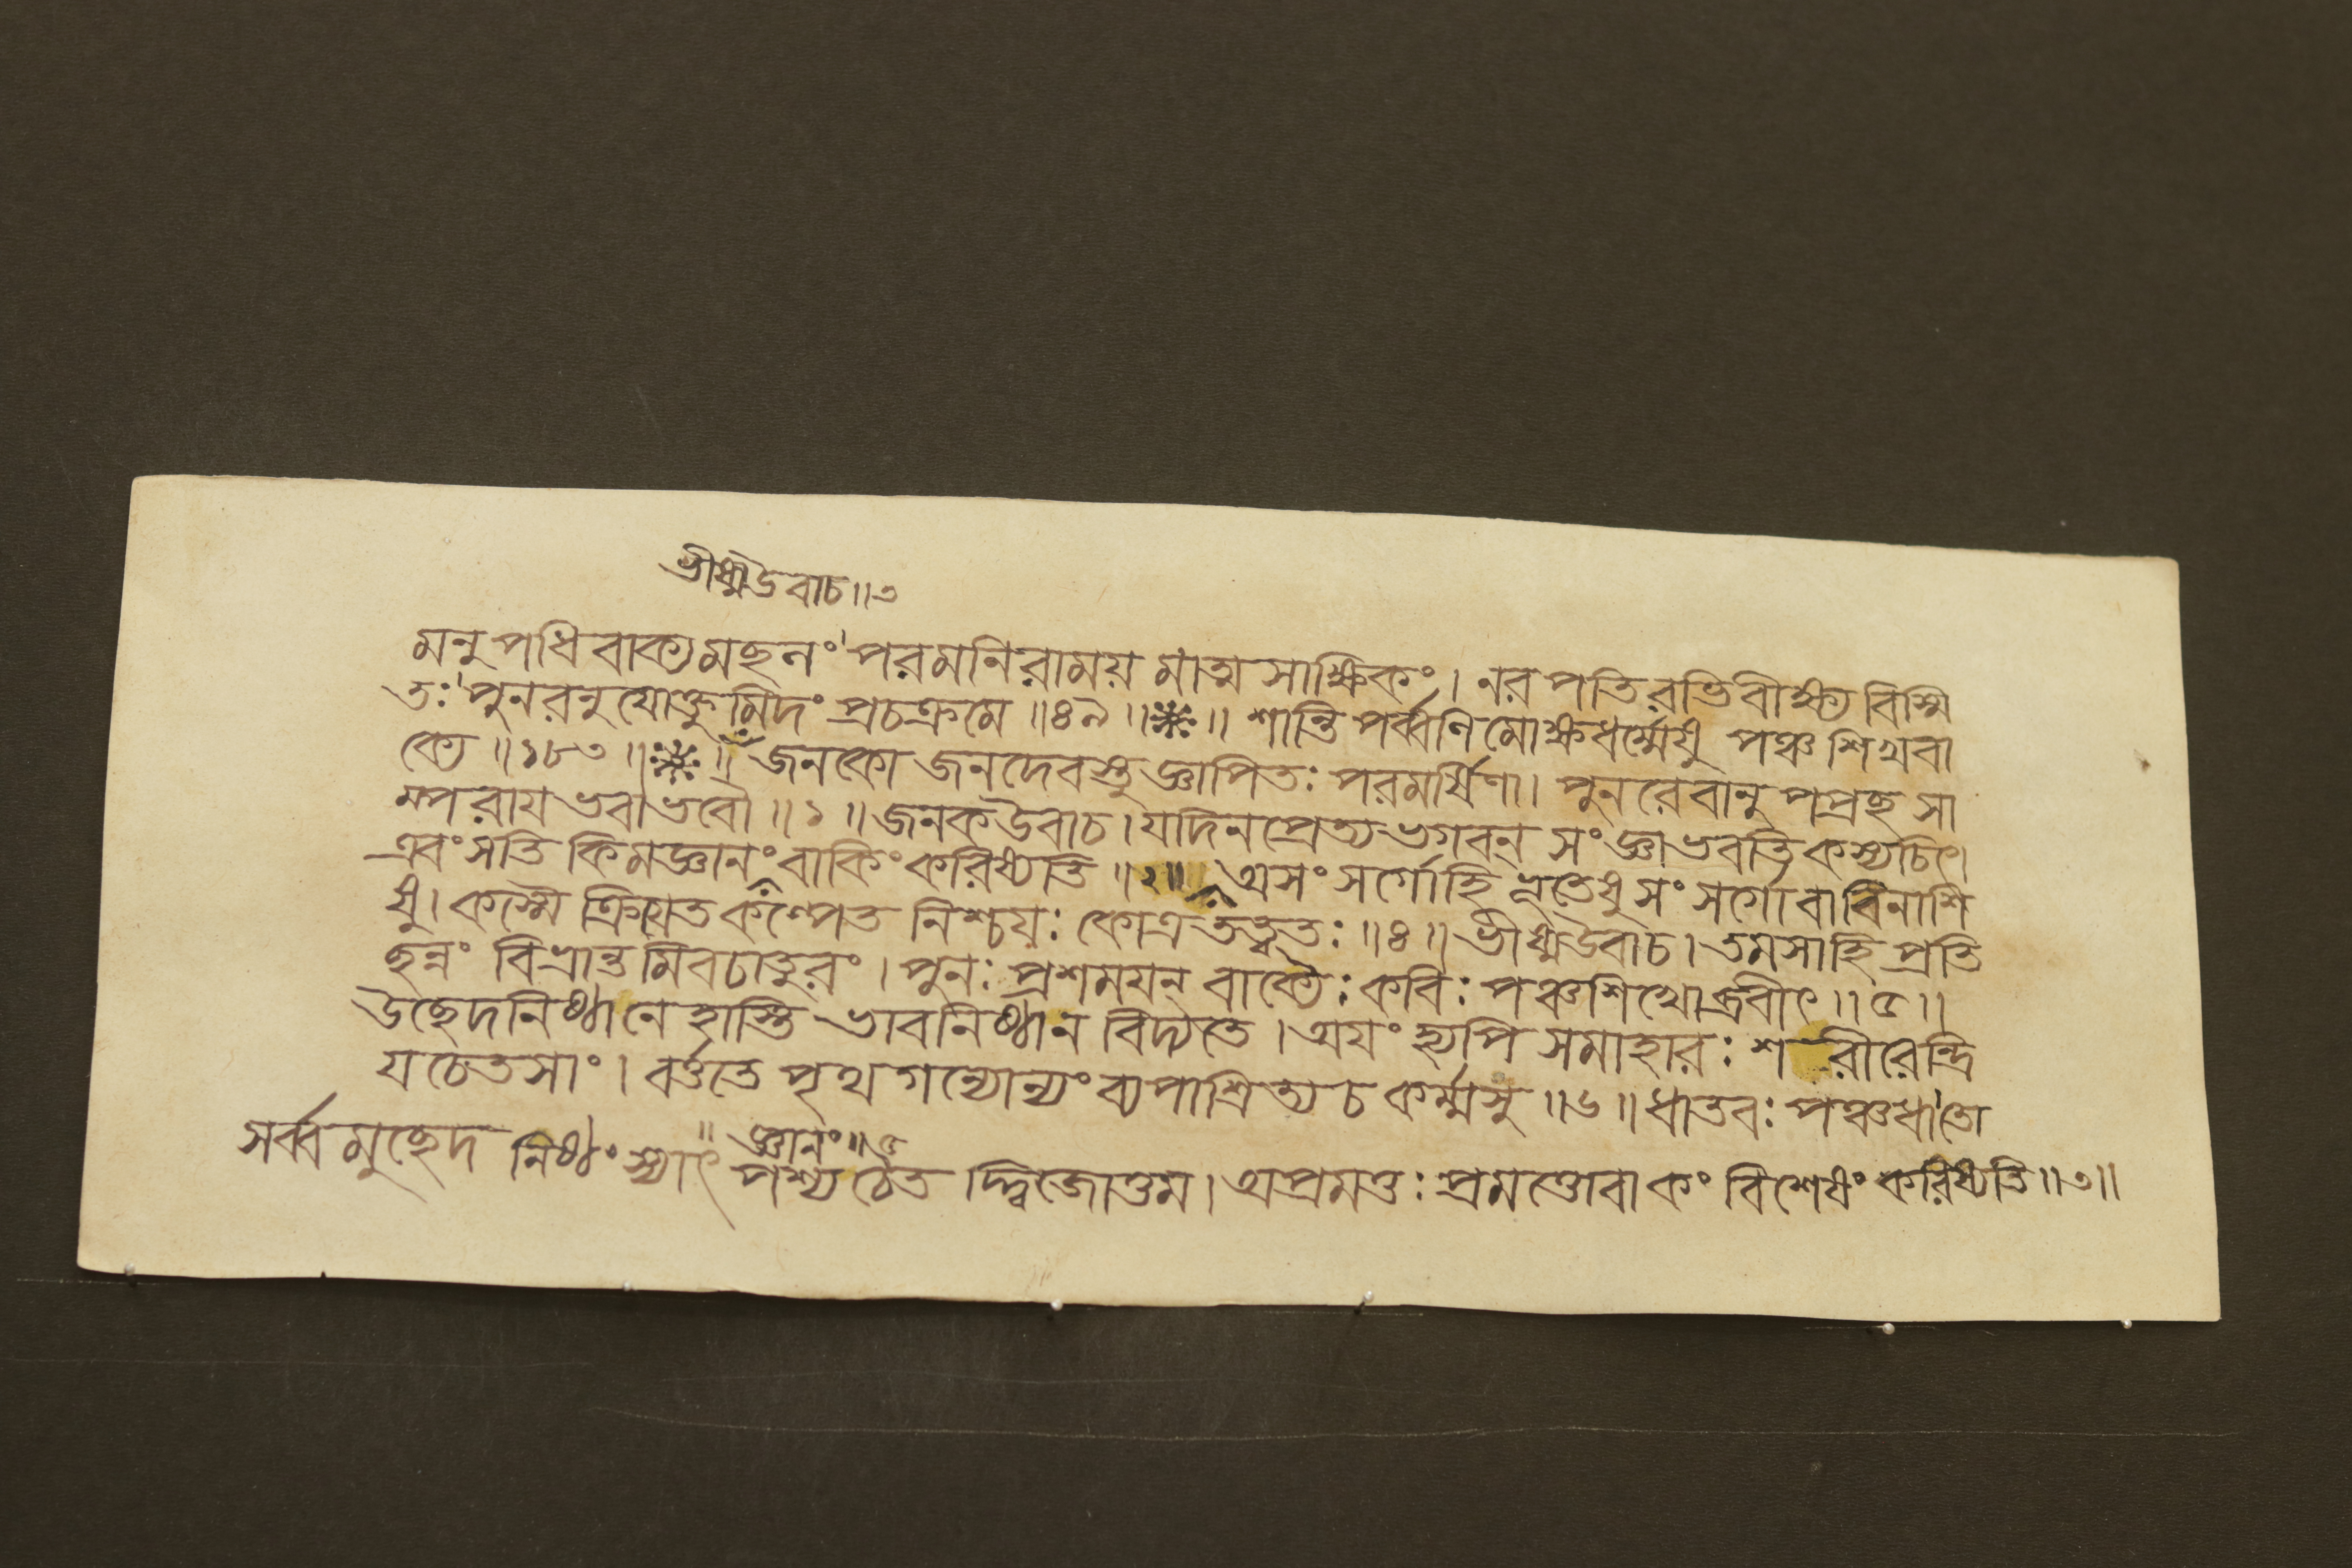 ভীষ্মউবাচ॥৩
মনুপধিবাক্যমছনং পরমনিরাময়মাত্মসাক্ষিকং। নরপতিরভিবীক্ষ্যবিস্মি
তঃ পুনরনুযোক্তুমিদং প্রচক্রমে॥৪৯॥ ॥ শান্তিপর্ব্বণিমোক্ষধর্ম্মেষু পঞ্চশিখবা
ক্যে॥১৮৩॥ ॥ জনকোজনদেবস্তুজ্ঞাপিতঃ পরমর্ষিণা। পুনরেবানুপপ্রছসা
ম্পরাযভবাভবৌ॥১॥ জনকউবাচ। যদিনপ্রেত্যভগবন্ সংজ্ঞাভবতিকস্যচিৎ।
এবংসতিকিমজ্ঞানংবাকিংকরিষ্যতি॥২॥ অসংসর্গোহিভূতেষুসংসর্গোবাবিনাশি
ষু। কস্মৈক্রিযতকল্পেত নিশ্চযঃ কোত্রতত্ত্বতঃ॥৪॥ ভীষ্মউবাচ। তমসাহিপ্রতি
ছন্নং বিভ্রান্তমিবচাতুরং। পুনঃ প্রশমযন্ বাক্যৈঃ কবিঃ পঞ্চশিখোব্রবীৎ॥৫॥
উছেদনিষ্ঠানেহাস্তি ভাবনিষ্ঠান বিদ্যতে। অযংহ্যপি সমাহারঃ শরীরেন্দ্রি
যচেতসাং। বর্ত্ততে পৃথগন্যোন্যংব্যপাশ্রিত্যচকর্ম্মসু॥৬॥ ধাতবঃ পঞ্চধাতো
জ্ঞানং॥৫
সর্ব্বমুছেদনিষ্ঠং স্যাৎ পশ্যচৈতদ্দ্বিজোত্তম। অপ্রমত্তঃ প্রমত্তোবাকংবিশেষংকরিষ্যতি॥৩॥